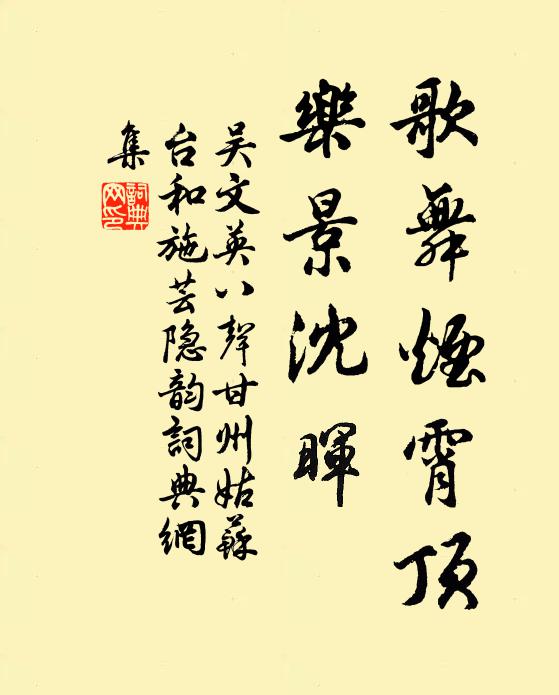 歌舞煙霄頂
樂景沈暉
吴文英八聲甘州姑蘇
台和施芸隐韵詞典網
集
詞典網印